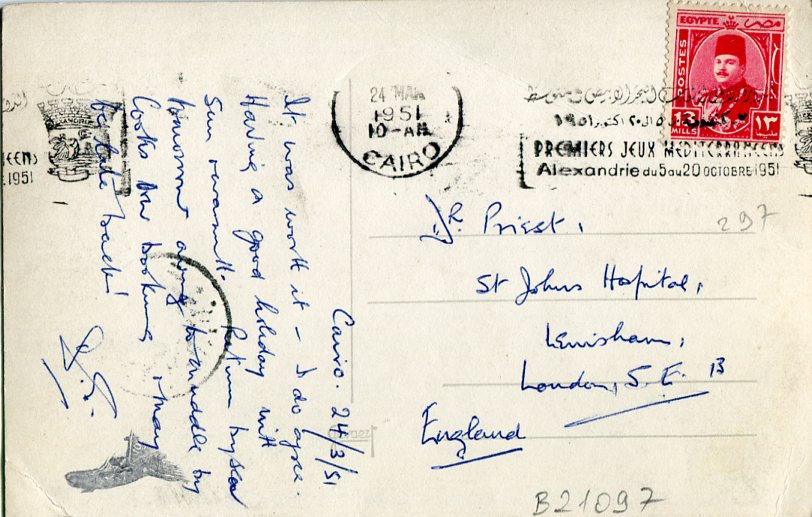 Cairo. 24/3/51
It was worth it – I do agree.
Having a good holiday with
Sun warmth. Return by sea
tomorrow owing to muddle by
Cooks over booking, & may
be late back!
Dr. Priest,
St Johns Hospital,
Lewisham,
London, S.E. 13
England
297
B21097
EGYPTE مصر
POSTES
13 MILLS ١٣
24 MAR
1951
10-AM
CAIRO
PREMIERS JEUX MEDITERRANEENS
Alexandrie du 5 au 20 OCTOBRE 1951
EENS
E 1951